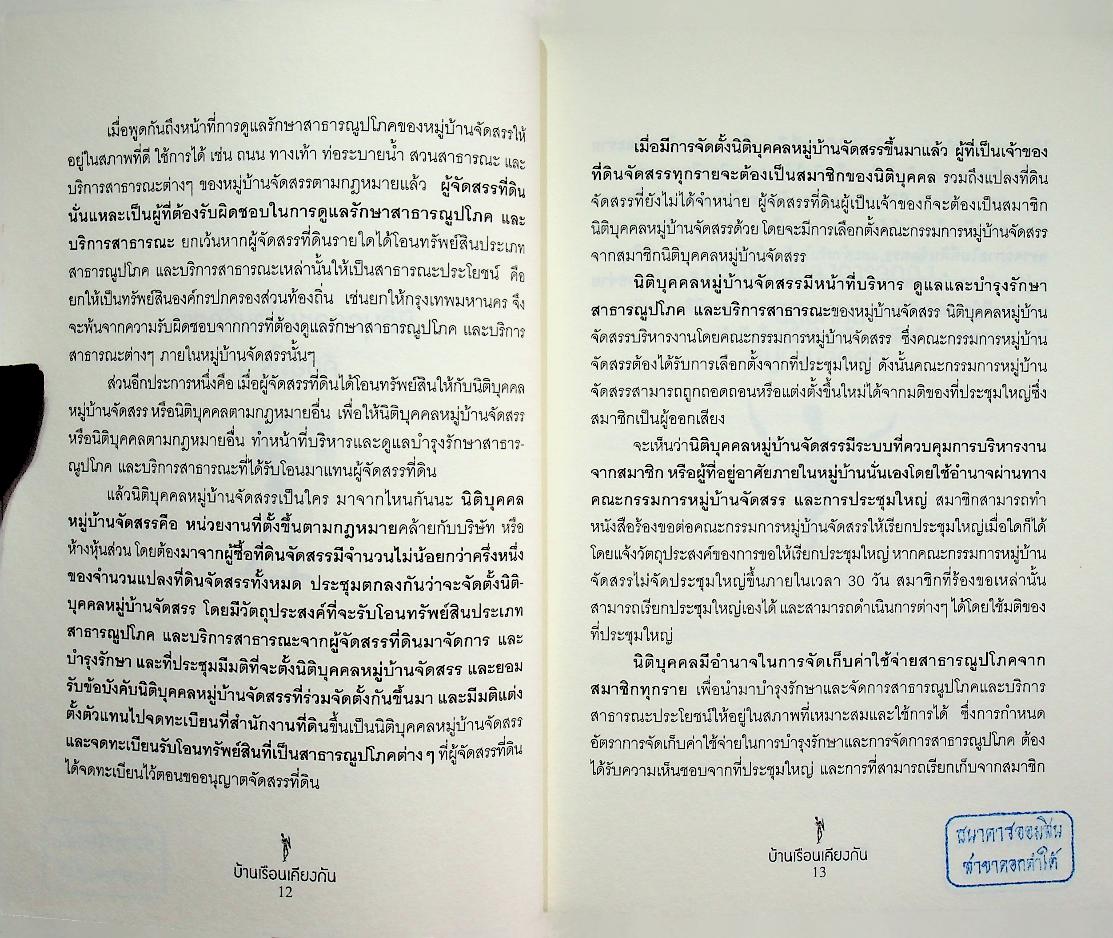 เมื่อพูดกันถึงหน้าที่การดูแลรักษาสาธารณูปโภคของหมู่บ้านจัดสรรให้
อยู่ในสภาพที่ดี ใช้การได้ เช่น ถนน ทางเท้า ท่อระบายน้ำ สวนสาธารณะ และ
บริการสาธารณะต่างๆ ของหมู่บ้านจัดสรรตามกฎหมายแล้ว ผู้จัดสรรที่ดิน
นั่นแหละเป็นผู้ที่ต้องรับผิดชอบในการดูแลรักษาสาธารณูปโภค และ
บริการสาธารณะ ยกเว้นหากผู้จัดสรรที่ดินรายใดได้โอนทรัพย์สินประเภท
สาธารณูปโภค และบริการสาธารณะเหล่านั้นให้เป็นสาธารณะประโยชน์ คือ
ยกให้เป็นทรัพย์สินองค์กรปกครองส่วนท้องถิ่น เช่นยกให้กรุงเทพมหานคร จึง
จะพ้นจากความรับผิดชอบจากการที่ต้องดูแลรักษาสาธารณูปโภค และบริการ
สาธารณะต่างๆ ภายในหมู่บ้านจัดสรรนั้นๆ
ส่วนอีกประการหนึ่งคือ เมื่อผู้จัดสรรที่ดินได้โอนทรัพย์สินให้กับนิติบุคคล
หมู่บ้านจัดสรร หรือนิติบุคคลตามกฎหมายอื่น เพื่อให้นิติบุคคลหมู่บ้านจัดสรร
หรือนิติบุคคลตามกฎหมายอื่น ทำหน้าที่บริหารและดูแลบำรุงรักษาสาธาร-
ณูปโภค และบริการสาธารณะที่ได้รับโอนมาแทนผู้จัดสรรที่ดิน
แล้วนิติบุคคลหมู่บ้านจัดสรรเป็นใคร มาจากไหนกันนะ นิติบุคคล
หมู่บ้านจัดสรรคือ หน่วยงานที่ตั้งขึ้นตามกฎหมายคล้ายกับบริษัท หรือ
ห้างหุ้นส่วน โดยต้องมาจากผู้ซื้อที่ดินจัดสรรมีจำนวนไม่น้อยกว่าครึ่งหนึ่ง
ของจำนวนแปลงที่ดินจัดสรรทั้งหมด ประชุมตกลงกันว่าจะจัดตั้งนิติ-
บุคคลหมู่บ้านจัดสรร โดยมีวัตถุประสงค์ที่จะรับโอนทรัพย์สินประเภท
สาธารณูปโภค และบริการสาธารณะจากผู้จัดสรรที่ดินมาจัดการ และ
บำรุงรักษา และที่ประชุมมีมติที่จะตั้งนิติบุคคลหมู่บ้านจัดสรร และยอม
รับข้อบังคับนิติบุคคลหมู่บ้านจัดสรรที่ร่วมจัดตั้งกันขึ้นมา และมีมติแต่ง
ตั้งตัวแทนไปจดทะเบียนที่สำนักงานที่ดินขึ้นเป็นนิติบุคคลหมู่บ้านจัดสรร
และจดทะเบียนรับโอนทรัพย์สินที่เป็นสาธารณูปโภคต่าง ๆ ที่ผู้จัดสรรที่ดิน
ได้จดทะเบียนไว้ตอนขออนุญาตจัดสรรที่ดิน
บ้านเรือนเคียงกัน
12
เมื่อมีการจัดตั้งนิติบุคคลหมู่บ้านจัดสรรขึ้นมาแล้ว ผู้ที่เป็นเจ้าของ
ที่ดินจัดสรรทุกรายจะต้องเป็นสมาชิกของนิติบุคคล รวมถึงแปลงที่ดิน
จัดสรรที่ยังไม่ได้จำหน่าย ผู้จัดสรรที่ดินผู้เป็นเจ้าของก็จะต้องเป็นสมาชิก
นิติบุคคลหมู่บ้านจัดสรรด้วย โดยจะมีการเลือกตั้งคณะกรรมการหมู่บ้านจัดสรร
จากสมาชิกนิติบุคคลหมู่บ้านจัดสรร
นิติบุคคลหมู่บ้านจัดสรรมีหน้าที่บริหาร ดูแลและบำรุงรักษา
สาธารณูปโภค และบริการสาธารณะของหมู่บ้านจัดสรร นิติบุคคลหมู่บ้าน
จัดสรรบริหารงานโดยคณะกรรมการหมู่บ้านจัดสรร ซึ่งคณะกรรมการหมู่บ้าน
จัดสรรต้องได้รับการเลือกตั้งจากที่ประชุมใหญ่ ดังนั้นคณะกรรมการหมู่บ้าน
จัดสรรสามารถถูกถอดถอนหรือแต่งตั้งขึ้นใหม่ได้จากมติของที่ประชุมใหญ่ซึ่ง
สมาชิกเป็นผู้ออกเสียง
จะเห็นว่านิติบุคคลหมู่บ้านจัดสรรมีระบบที่ควบคุมการบริหารงาน
จากสมาชิก หรือผู้ที่อยู่อาศัยภายในหมู่บ้านนั่นเองโดยใช้อำนาจผ่านทาง
คณะกรรมการหมู่บ้านจัดสรร และการประชุมใหญ่ สมาชิกสามารถทำ
หนังสือร้องขอต่อคณะกรรมการหมู่บ้านจัดสรรให้เรียกประชุมใหญ่เมื่อใดก็ได้
โดยแจ้งวัตถุประสงค์ของการขอให้เรียกประชุมใหญ่ หากคณะกรรมการหมู่บ้าน
จัดสรรไม่จัดประชุมใหญ่ขึ้นภายในเวลา 30 วัน สมาชิกที่ร้องขอเหล่านั้น
สามารถเรียกประชุมใหญ่เองได้ และสามารถดำเนินการต่างๆ ได้โดยใช้มติของ
ที่ประชุมใหญ่
นิติบุคคลมีอำนาจในการจัดเก็บค่าใช้จ่ายสาธารณูปโภคจาก
สมาชิกทุกราย เพื่อนำมาบำรุงรักษาและจัดการสาธารณูปโภคและบริการ
สาธารณะประโยชน์ให้อยู่ในสภาพที่เหมาะสมและใช้การได้ ซึ่งการกำหนด
อัตราการจัดเก็บค่าใช้จ่ายในการบำรุงรักษาและการจัดการสาธารณูปโภค ต้อง
ได้รับความเห็นชอบจากที่ประชุมใหญ่ และการที่สามารถเรียกเก็บจากสมาชิก
บ้านเรือนเคียงกัน
13
ธนาคารออมสิน
สาขาดอกคำใต้